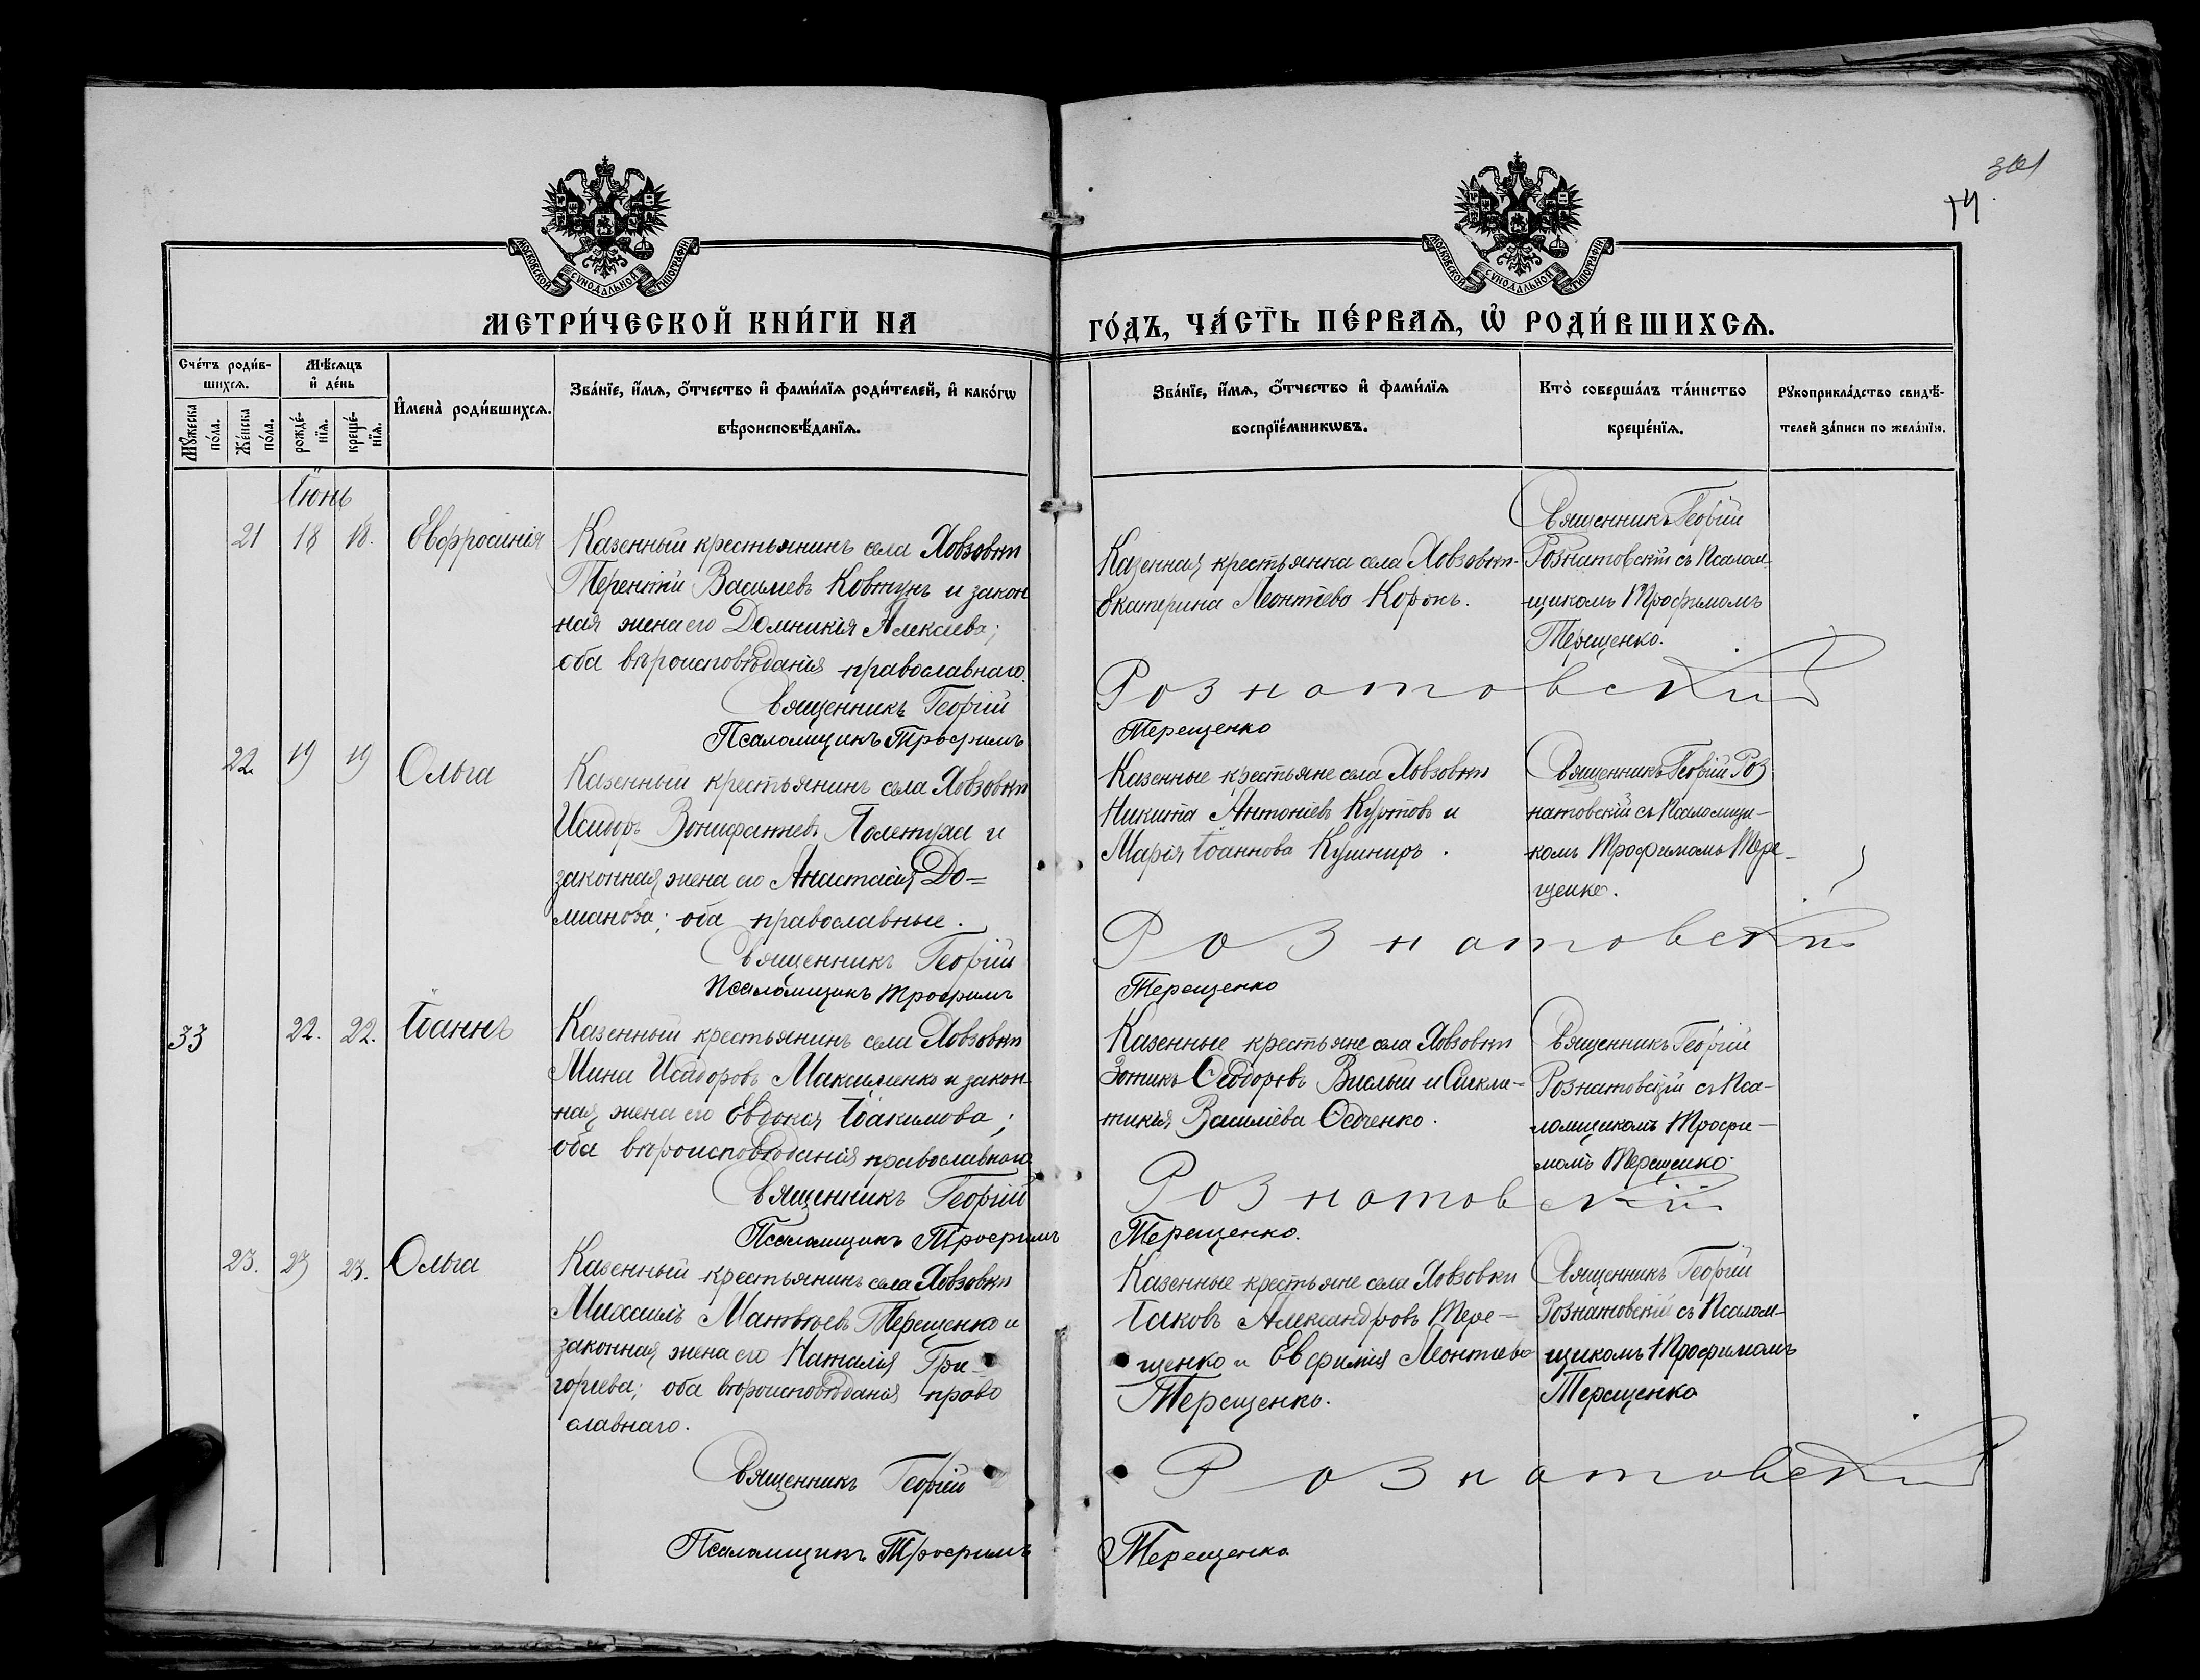 301
14.
МОСКОВСКОЙ СѴНОДАЛЬНОЙ ТИПОГРАФІИ
МОСКОВСКОЙ СѴНОДАЛЬНОЙ ТИПОГРАФІИ
МЕТРИ́ЧЕСКОЙ КНИ́ГИ НА
ГО́ДЪ, ЧА́СТЬ ПЕ́РВАѦ, Ѡ҆ РОДИ́ВШИХСѦ.
Сче́тъ роди́в-
шихсѧ.
Мꙋ́жеска
по́ла.
Же́нска
по́ла.
Мѣ́сѧцъ
и҆ де́нь
рожде́-
нїѧ.
креще́-
нїѧ.
И҆мена̀ роди́вшихсѧ.
Зва́нїе, и҆́мѧ, ѻ҆́тчество и҆ фами́лїѧ роди́телей, и҆ како́гѡ
вѣроисповѣ́данїѧ.
Зва́нїе, и҆́мѧ, ѻ҆́тчество и҆ фами́лїѧ
воспрїе́мникѡвъ.
Кто̀ соверша́лъ та́инство
креще́нїѧ.
Рꙋкоприкла́дство свидѣ́-
телей за́писи по жела́нїю.
Іюнь
21 18 18. Евфросинія
Казенный крестьянинъ села Ховзовки
Терентій Васильевъ Ковтунъ и закон
ная жена его Домникія Алексіева;
оба вѣроисповѣданія православнаго.
Священникъ Георгій
Псаломщикъ Трофимъ
Казенная крестьянка села Ховзовки-
Екатерина Леонтіева Корокъ.
Священникъ Георгій
Рознатовскій съ Псалом-
щикомъ Трофимомъ
Терещенко.
Рознатовскій
Терещенко
22. 19 19 Ольга
Казенный крестьянинъ села Ховзовки
Исидоръ Вонифатіевъ и
законная жена его Анастасія До=
міанова; оба православные.
Священникъ Георгій
Псаломщикъ Трофимъ
Казенные крестьяне села Ховзовки
Никита Антоніевъ Куртовъ и
Марія Іоаннова Кушниръ.
Священникъ Георгій Роз
натовскій съ Псаломщи-
комъ Трофимомъ Тере-
щенко.
Рознатовскій
Терещенко
33 22. 22. Іоаннъ
Казенный крестьянинъ села Ховзовки
Мина Исидоровъ Максименко и закон-
ная жена его Евдокія Іоакимова;
оба вѣроисповѣданія православнаго
Священникъ Георгій
Псаломщикъ Трофимъ
Казенные крестьяне села Ховзовки
Зотикъ Ѳеодоровъ и Синкли-
тикія Василіева Осдченко.
Священникъ Георгій
Рознатовскій съ Пса-
ломщикомъ Трофи-
момъ Терещенко.
Рознатовскій
Терещенко.
23. 23 23. Ольга
Казенный крестьянинъ села Ховзовки
Михаилъ Матвѣевъ Терещенко и
законная жена его Наталія Гри-
горіева; оба вѣроисповѣданія право
славнаго.
Священникъ Георгій
Псаломщикъ Трофимъ
Казенные крестьяне села Ховзовки
Іаковъ Александровъ Тере-
щенко и Евфимія Леонтіева
Терещенко.
Священникъ Георгій
Рознатовскій съ Псалом-
щикомъ Трофимомъ
Терещенко
Рознатовскій
Терещенко